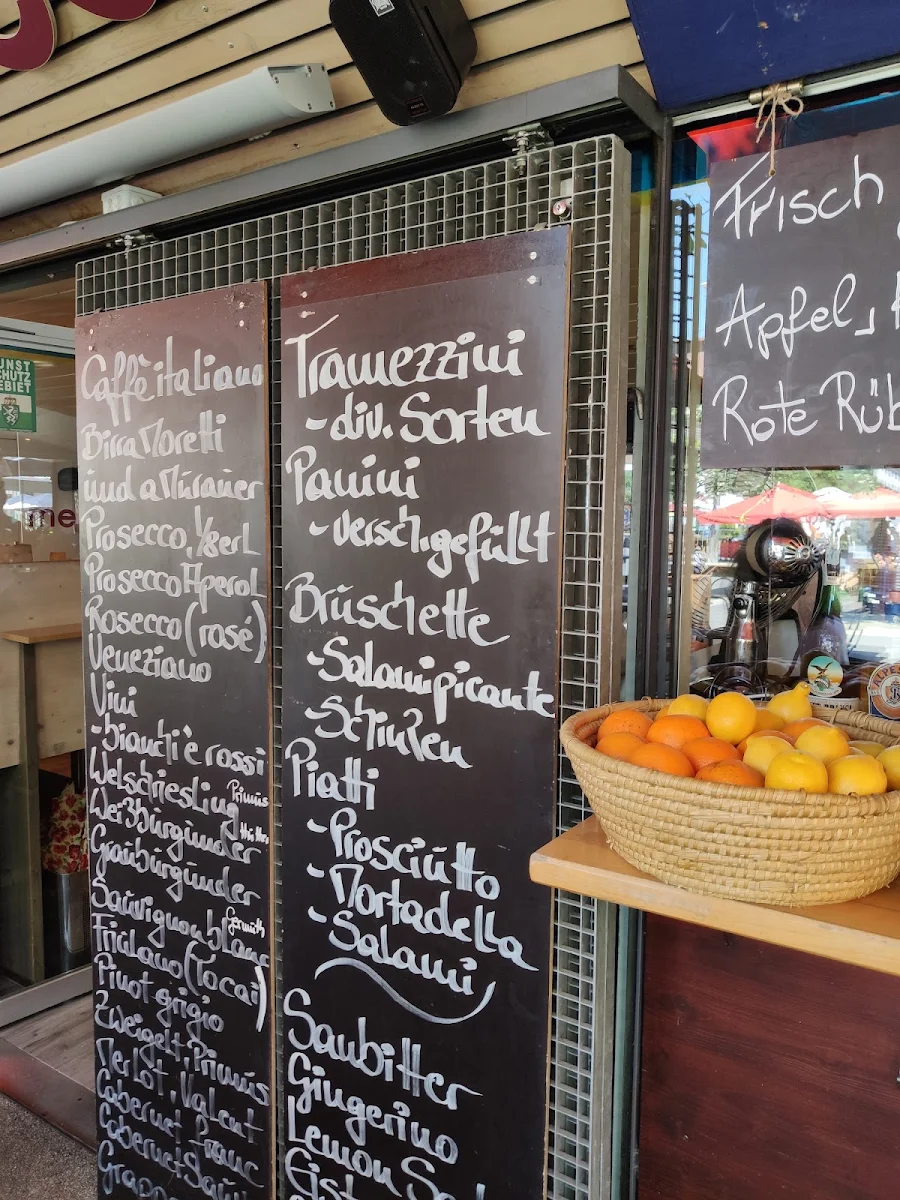 Caffè italiano
Birra Moretti
und a Murauer
Prosecco, ⅛erl
Prosecco Aperol
Rosecco (rosé)
Veneziano
Vini
- bianchi è rossi
Welschriesling Primus
Weißburgunder
Grauburgunder
Sauvignon blanc
Friulano (Tocai)
Pinot grigio
Zweigelt, Primus
Merlot, Valent
Cabernet Franc
Cabernet Sauv
Grappa
Tramezzini
- div. Sorten
Panini
- versch. gefüllt
Brüschette
- Salami picante
- Schinken
Piatti
- Prosciutto
- Mortadella
- Salami
Saubitter
Gingerino
Lemon So
Eist
Frisch
Apfel,
Rote Rüb
UNST
CHUTZ
EBIET
me